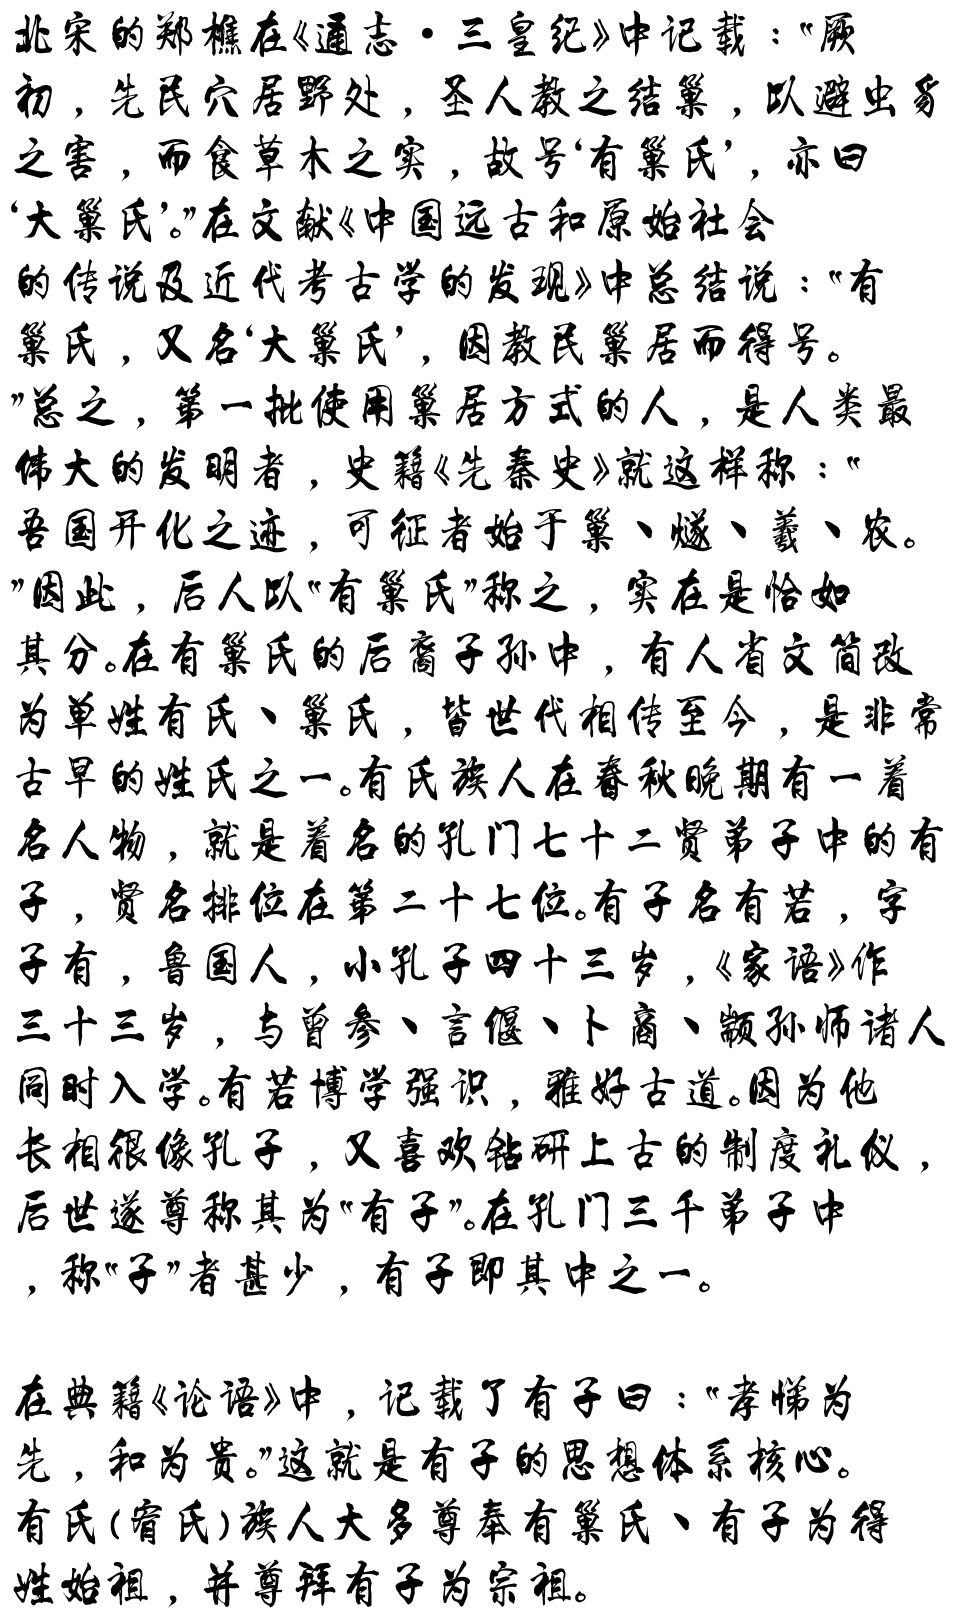 北宋的郑樵在《通志·三皇纪》中记载："厥
初，先民穴居野处，圣人教之结巢，以避虫豸
之害，而食草木之实，故号'有巢氏'，亦曰
'大巢氏'。"在文献《中国远古和原始社会
的传说及近代考古学的发现》中总结说："有
巢氏，又名'大巢氏'，因教民巢居而得号。
"总之，第一批使用巢居方式的人，是人类最
伟大的发明者，史籍《先秦史》就这样称："
吾国开化之迹，可征者始于巢、燧、羲、农。
"因此，后人以"有巢氏"称之，实在是恰如
其分。在有巢氏的后裔子孙中，有人省文简改
为单姓有氏、巢氏，皆世代相传至今，是非常
古早的姓氏之一。有氏族人在春秋晚期有一着
名人物，就是着名的孔门七十二贤弟子中的有
子，贤名排位在第二十七位。有子名有若，字
子有，鲁国人，小孔子四十三岁，《家语》作
三十三岁，与曾参、言偃、卜商、颛孙师诸人
同时入学。有若博学强识，雅好古道。因为他
长相很像孔子，又喜欢钻研上古的制度礼仪，
后世遂尊称其为"有子"。在孔门三千弟子中
，称"子"者甚少，有子即其中之一。
在典籍《论语》中，记载了有子曰："孝悌为
先，和为贵。"这就是有子的思想体系核心。
有氏(宥氏)族人大多尊奉有巢氏、有子为得
姓始祖，并尊拜有子为宗祖。